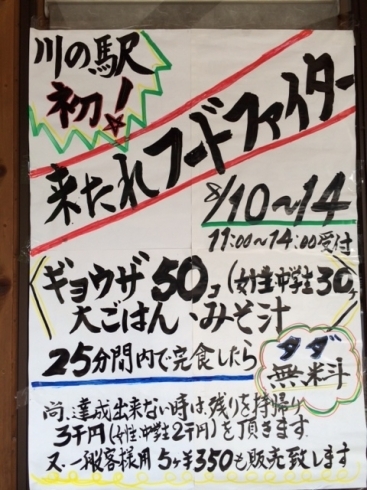 川の駅
初!
来たれフードファイター
8/10〜14
11:00〜14:00受付
ギョウザ50コ(女性・中学生30ケ)
大ごはん、みそ汁
25分間内で完食したら
タダ
無料
尚、達成出来ない時は、残りを持帰り
3千円(女性、中学生2千円)を頂きます
又、一般客様用5ヶ¥350も販売致します